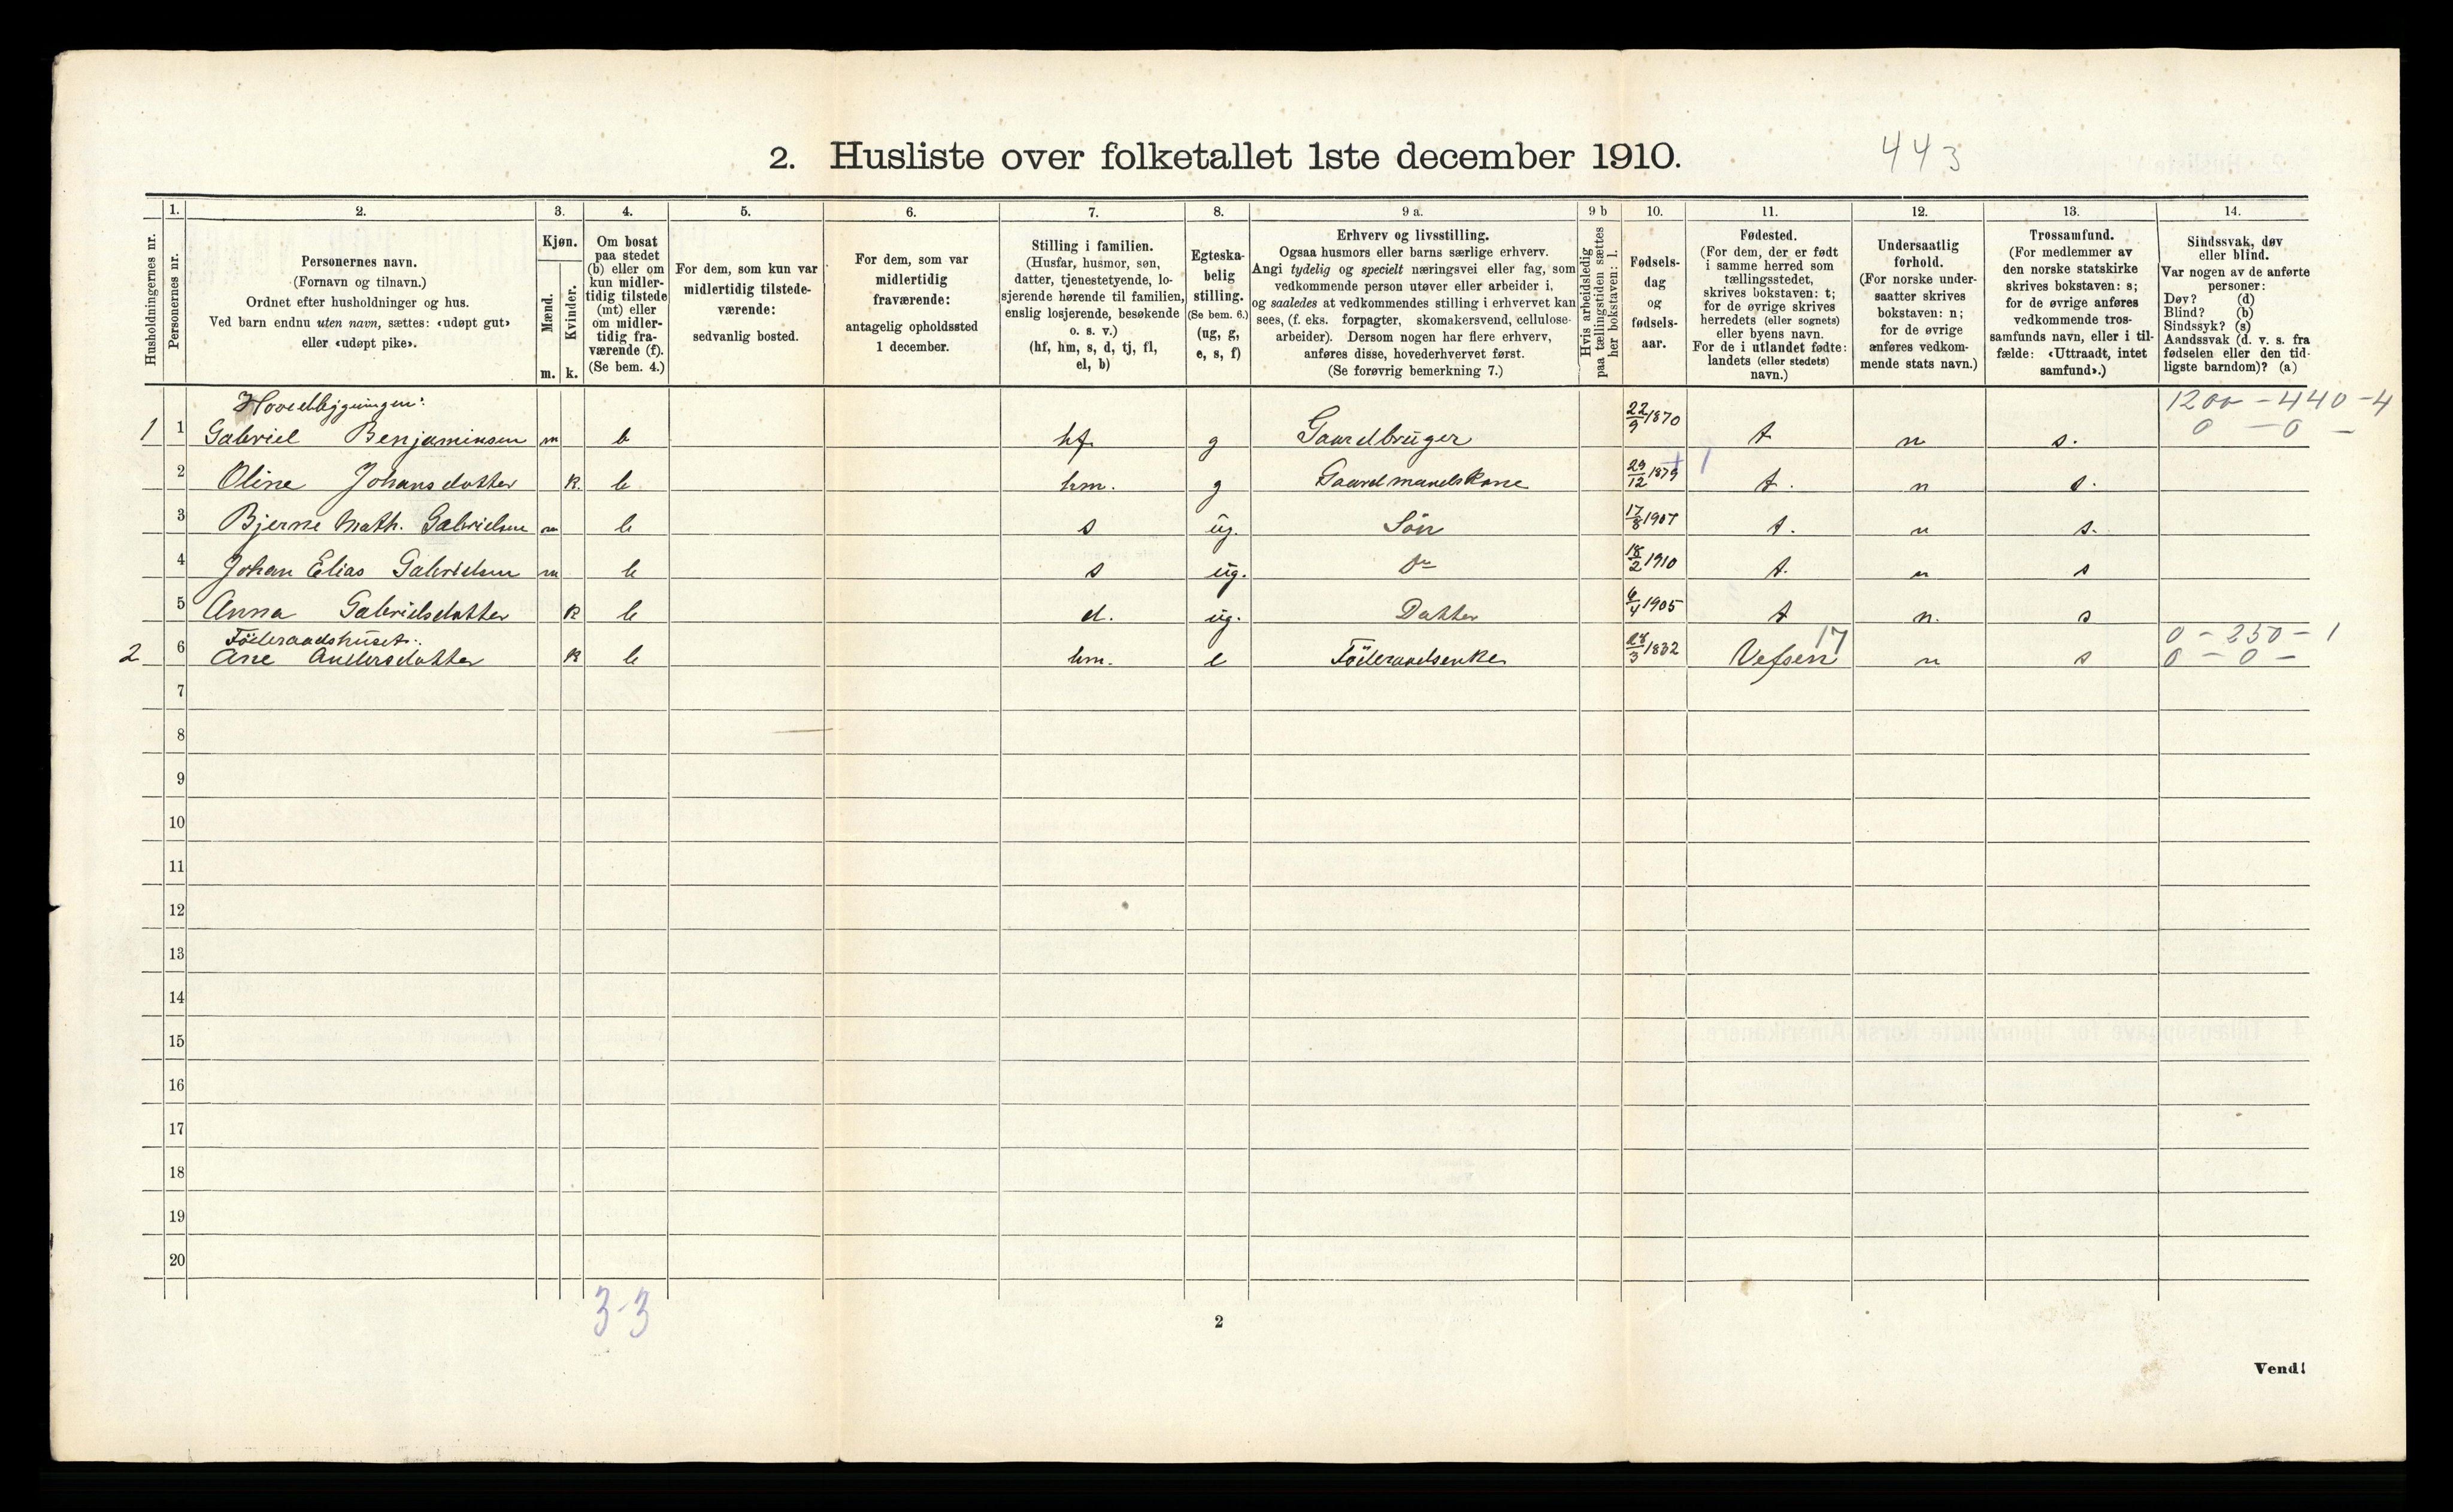 2. Husliste over folketallet 1ste december 1910.
443
Husholdningernes nr.
1. Personernes nr.
2. Personernes navn.
(Fornavn og tilnavn.)
Ordnet efter husholdninger og hus.
Ved barn endnu uten navn, sættes: «udøpt gut»
eller «udøpt pike».
3. Kjøn.
Mænd. Kvinder.
m. k.
4. Om bosat
paa stedet
(b) eller om
kun midler-
tidig tilstede
(mt) eller
om midler-
tidig fra-
værende (f).
(Se bem. 4.)
5. For dem, som kun var
midlertidig tilstede-
værende:
sedvanlig bosted.
6. For dem, som var
midlertidig
fraværende:
antagelig opholdssted
1 december.
7. Stilling i familien.
(Husfar, husmor, søn,
datter, tjenestetyende, lo-
sjerende hørende til familien,
enslig losjerende, besøkende
o. s. v.)
(hf, hm, s, d, tj, fl,
el, b)
8. Egteska-
belig
stilling.
(Se bem. 6.)
(ug, g,
e, s, f)
9 a. Erhverv og livsstilling.
Ogsaa husmors eller barns særlige erhverv.
Angi tydelig og specielt næringsvei eller fag, som
vedkommende person utøver eller arbeider i,
og saaledes at vedkommendes stilling i erhvervet kan
sees, (f. eks. forpagter, skomakersvend, cellulose-
arbeider). Dersom nogen har flere erhverv,
anføres disse, hovederhvervet først.
(Se forøvrig bemerkning 7.)
9 b Hvis arbeidsledig
paa tællingstiden sættes
her bokstaven: l.
10. Fødsels-
dag
og
fødsels-
aar.
11. Fødested.
(For dem, der er født
i samme herred som
tællingsstedet,
skrives bokstaven: t;
for de øvrige skrives
herredets (eller sognets)
eller byens navn.
For de i utlandet fødte:
landets (eller stedets)
navn.)
12. Undersaatlig
forhold.
(For norske under-
saatter skrives
bokstaven: n;
for de øvrige
anføres vedkom-
mende stats navn.)
13. Trossamfund.
(For medlemmer av
den norske statskirke
skrives bokstaven: s;
for de øvrige anføres
vedkommende tros-
samfunds navn, eller i til-
fælde: «Uttraadt, intet
samfund».)
14. Sindssvak, døv
eller blind.
Var nogen av de anførte
personer:
Døv? (d)
Blind? (b)
Sindssyk? (s)
Aandssvak (d. v. s. fra
fødselen eller den tid-
ligste barndom)? (a)
Hovedbygningen: 1200 - 440 - 4
1 1 Gabriel Benjaminsen m b hf g Gaardbruger 22/9 1870 t n s. 0 - 0 -
2 Oline Johansdatter k. b hm. g Gaardmandskone 29/12 1879 t. n s.
3 Bjerne Math. Gabrielsen m b s ug. Sön 17/8 1907 t. n s.
4 Johan Elias Gabrielsen m b s ug. Do 18/2 1910 t. n s
5 Anna Gabrielsdatter k b d. ug. Datter 6/4 1905 t n. s
Föderaadshuset: 17 0 - 250 - 1
2 6 Ane Andersdatter k b hm. e Föderaadsenke 28/3 1832 Vefsen n s 0 - 0 -
7
8
9
10
11
12
13
14
15
16
17
18
19
20
3-3
2
Vend!